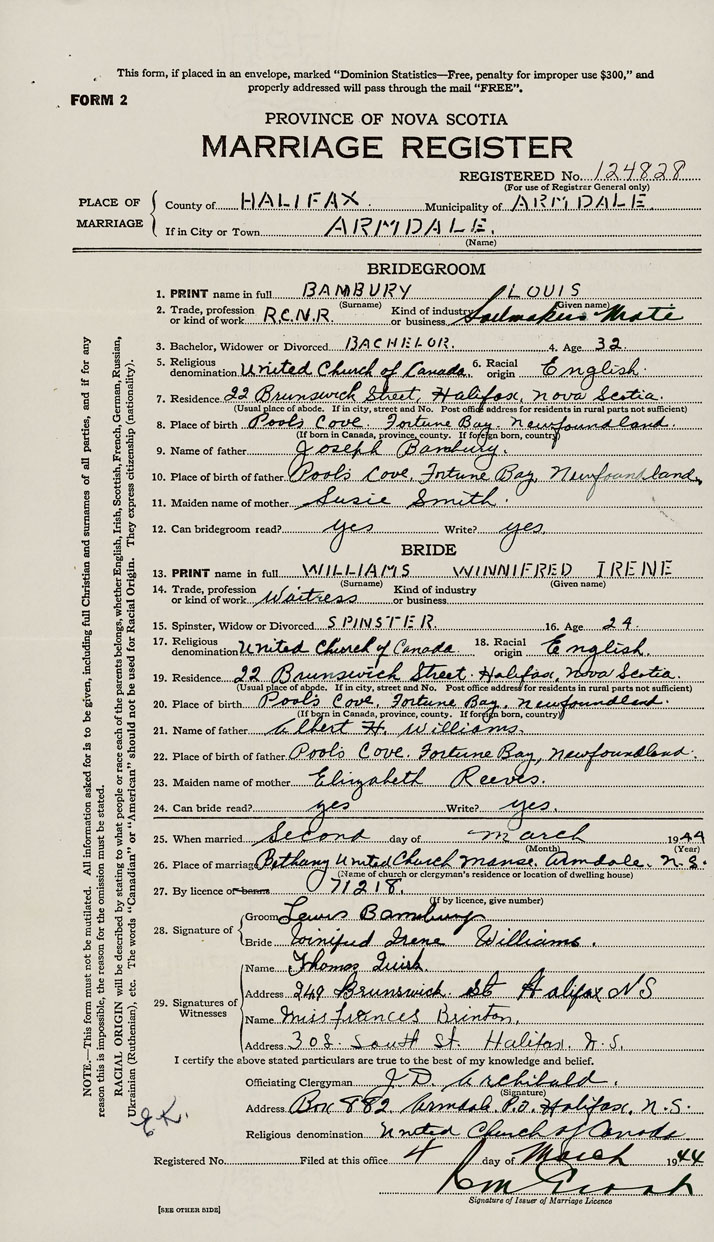 This form, if placed in an envelope, marked "Dominion Statistics—Free, penalty for improper use $300," and
properly addressed will pass through the mail "FREE".
FORM 2
PROVINCE OF NOVA SCOTIA
MARRIAGE REGISTER
REGISTERED No. 124828
(For use of Registrar General only)
PLACE OF MARRIAGE
County of HALIFAX. Municipality of ARMDALE.
If in City or Town ARMDALE.
(Name)
BRIDEGROOM
1. PRINT name in full BAMBURY LOUIS
(Surname) (Given name)
2. Trade, profession or kind of work R.C.N.R. Kind of industry or business Sailmakers Mate
3. Bachelor, Widower or Divorced BACHELOR. 4. Age 32.
5. Religious denomination United Church of Canada. 6. Racial origin English.
7. Residence 22 Brunswick Street, Halifax, Nova Scotia.
(Usual place of abode. If in city, street and No. Post office address for residents in rural parts not sufficient)
8. Place of birth Pool's Cove. Fortune Bay. Newfoundland.
(If born in Canada, province, county. If foreign born, country)
9. Name of father Joseph Bambury.
10. Place of birth of father Pool's Cove, Fortune Bay, Newfoundland.
11. Maiden name of mother Susie Smith.
12. Can bridegroom read? yes Write? yes.
BRIDE
13. PRINT name in full WILLIAMS WINNIFRED IRENE
(Surname) (Given name)
14. Trade, profession or kind of work Waitress Kind of industry or business
15. Spinster, Widow or Divorced SPINSTER. 16. Age 24.
17. Religious denomination United Church of Canada. 18. Racial origin English.
19. Residence 22 Brunswick Street. Halifax, Nova Scotia.
(Usual place of abode. If in city, street and No. Post office address for residents in rural parts not sufficient)
20. Place of birth Pool's Cove, Fortune Bay, Newfoundland.
(If born in Canada, province, county. If foreign born, country)
21. Name of father Albert H. Williams.
22. Place of birth of father Pool's Cove. Fortune Bay, Newfoundland.
23. Maiden name of mother Elizabeth Reeves.
24. Can bride read? yes Write? yes.
25. When married Second day of March 1944
(Month) (Year)
26. Place of marriage Bethany United Church Manse. Armdale. N.S.
(Name of church or clergyman's residence or location of dwelling house)
27. By licence or banns 71218.
(If by licence, give number)
28. Signature of
Groom Lewis Bambury
Bride Winifred Irene Williams.
29. Signatures of Witnesses
Name Thomas Quirk.
Address 249 Brunswick St Halifax NS
Name Miss Frances Brinton.
Address 308 South St. Halifax. N.S.
I certify the above stated particulars are true to the best of my knowledge and belief.
Officiating Clergyman J. D. Archibald.
(Signature)
Address Box 882 Armdale P.O. Halifax, N.S.
Religious denomination United Church of Canada
Registered No. Filed at this office 4 day of March 1944
Signature of Issuer of Marriage Licence
[SEE OTHER SIDE]
NOTE.—This form must not be mutilated. All information asked for is to be given, including full Christian and surnames of all parties, and if for any
reason this is impossible, the reason for the omission must be stated.
RACIAL ORIGIN will be described by stating to what people or race each of the parents belongs, whether English, Irish, Scottish, French, German, Russian,
Ukrainian (Ruthenian), etc. The words "Canadian" or "American" should not be used for Racial Origin. They express citizenship (nationality).
E.K.